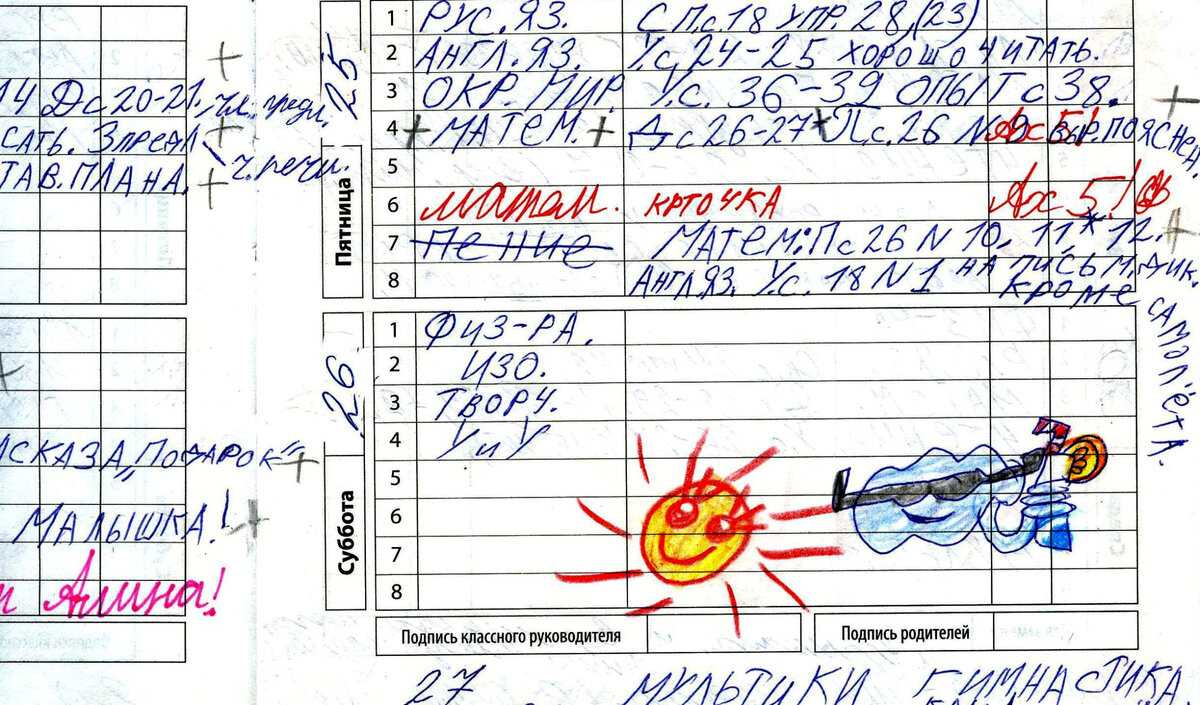 14 Дс 20-21. чл. предл.
сать. 3 предл
тав. плана. ч. речи.
асказа „Подарок"
Малышка!
Алина!
25
Пятница
1 Рус. яз. С.П.с.18 упр. 28, (23)
2 Англ. яз. У.с. 24-25 хорошо читать.
3 Окр. мир. У.с. 36-39 опыт с 38.
4 + Матем. + Дс 26-27 * Пс. 26 N 9 выр. пояснен.
5
6 матем. крточка Ах 5!
7 Пение Матем: Пс 26 N 10. 11* 12.
8 Англ. яз. У.с. 18 N1 на письм. дик.
кроме самолёта.
26
Суббота
1 Физ-ра.
2 ИЗО.
3 Творч.
4 УиУ
5
6
7
8
Подпись классного руководителя Подпись родителей
27 Мультики Гимнастика